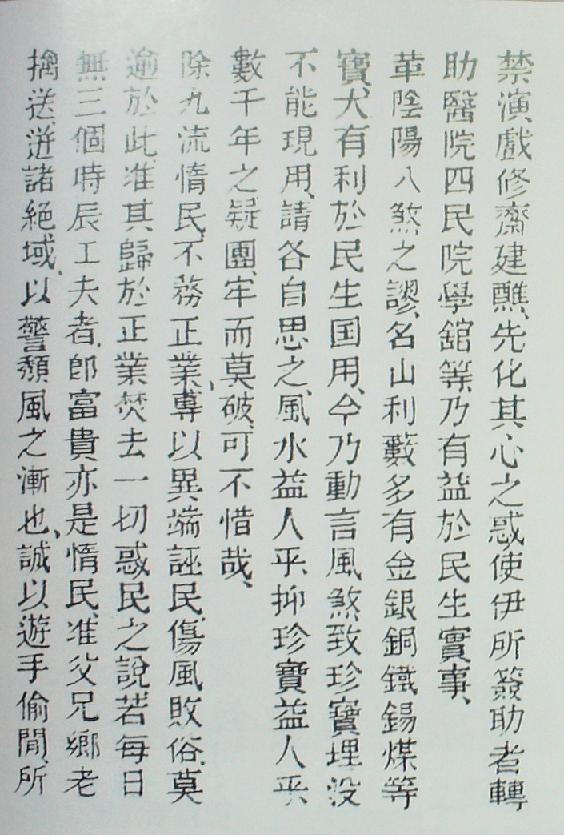 禁演戲修齋建醮、先化其心之惑使伊所簽助者轉
助醫院四民院學舘等、乃有益於民生實事、
革陰陽八煞之謬、名山利藪多有金銀銅鐵錫煤等
寶、大有利於民生国用、今乃動言風煞致珍寶埋没
不能現用、請各自思之、風水益人乎、抑珍寶益人乎、
數千年之疑團、牢而莫破、可不惜哉、
除九流惰民、不務正業、專以異端誣民、傷風敗俗、莫
逾於此、准其歸於正業焚去一切惑民之說若每日
無三個時辰工夫者、卽富貴亦是惰民准父兄鄉老
擒送迸諸絕域、以警頹風之漸也、誠以遊手偷閒、所